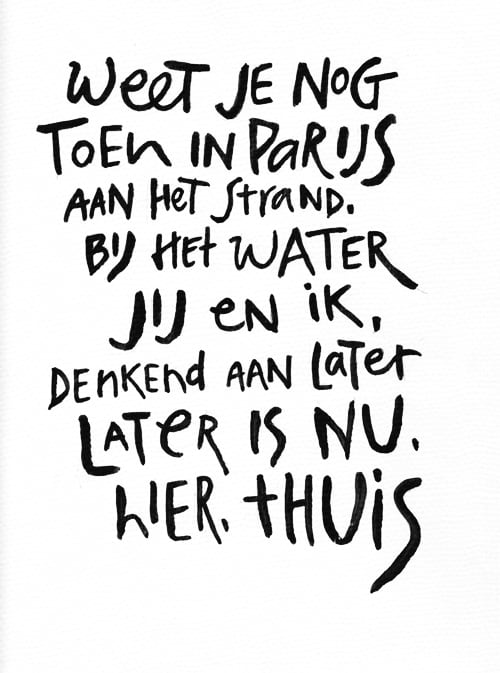 Weet JE NoG
ToEn IN PaRIJS
AAN HeT StraND.
BIJ HEt WATER
JIJ eN iK,
DEnKEnd AAN LaTer
LATeR IS NU.
hIER. tHUiS